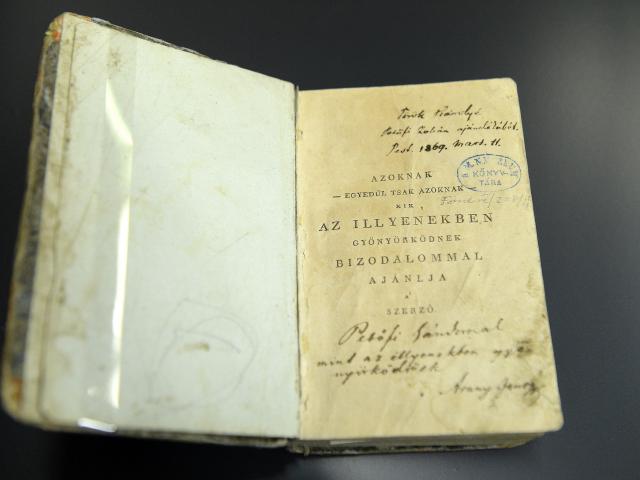 Török Károlyé
Petőfi Zoltán ajándékából.
Pest. 1869. Mart. 11.
AZOKNAK
— EGYEDŰL TSAK AZOKNAK
KIK
AZ ILLYENEKBEN
GYÖNYÖRKÖDNEK
BIZODALOMMAL
AJÁNLJA
A'
SZERZŐ.
KÖNYV-
TÁRA
Petőfi Sándornak
mint az illyenekben gyö-
nyörködőnek
Arany János